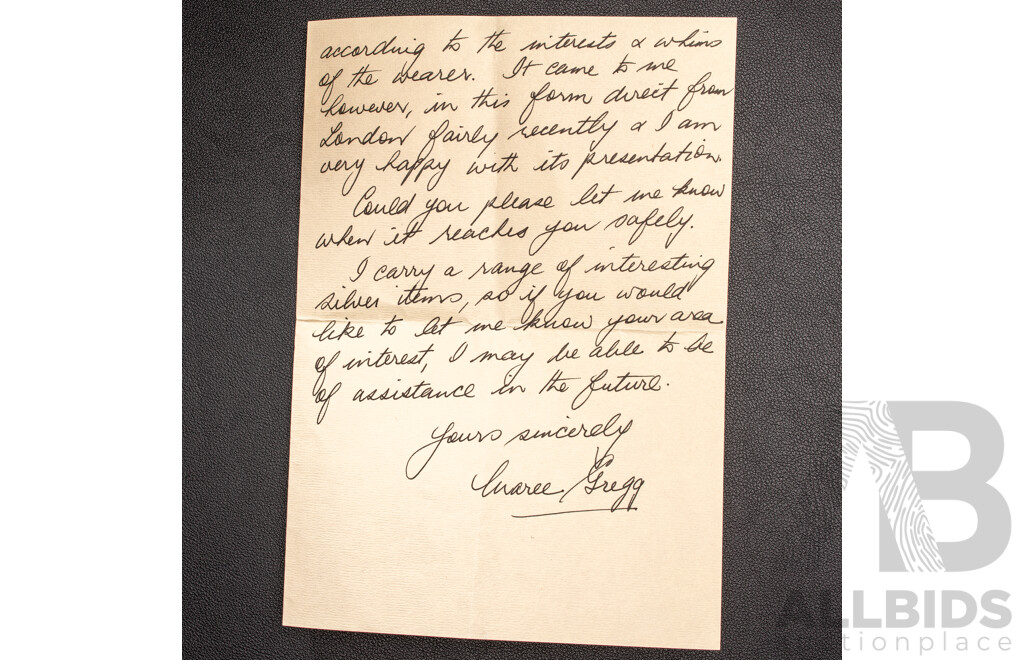 according to the interests & whims
of the wearer. It came to me
however, in this form direct from
London fairly recently & I am
very happy with its presentation.
Could you please let me know
when it reaches you safely.
I carry a range of interesting
silver items, so if you would
like to let me know your area
of interest, I may be able to be
of assistance in the future.
Yours sincerely
Maree Gregg
AB
ALLBIDS
tionplace